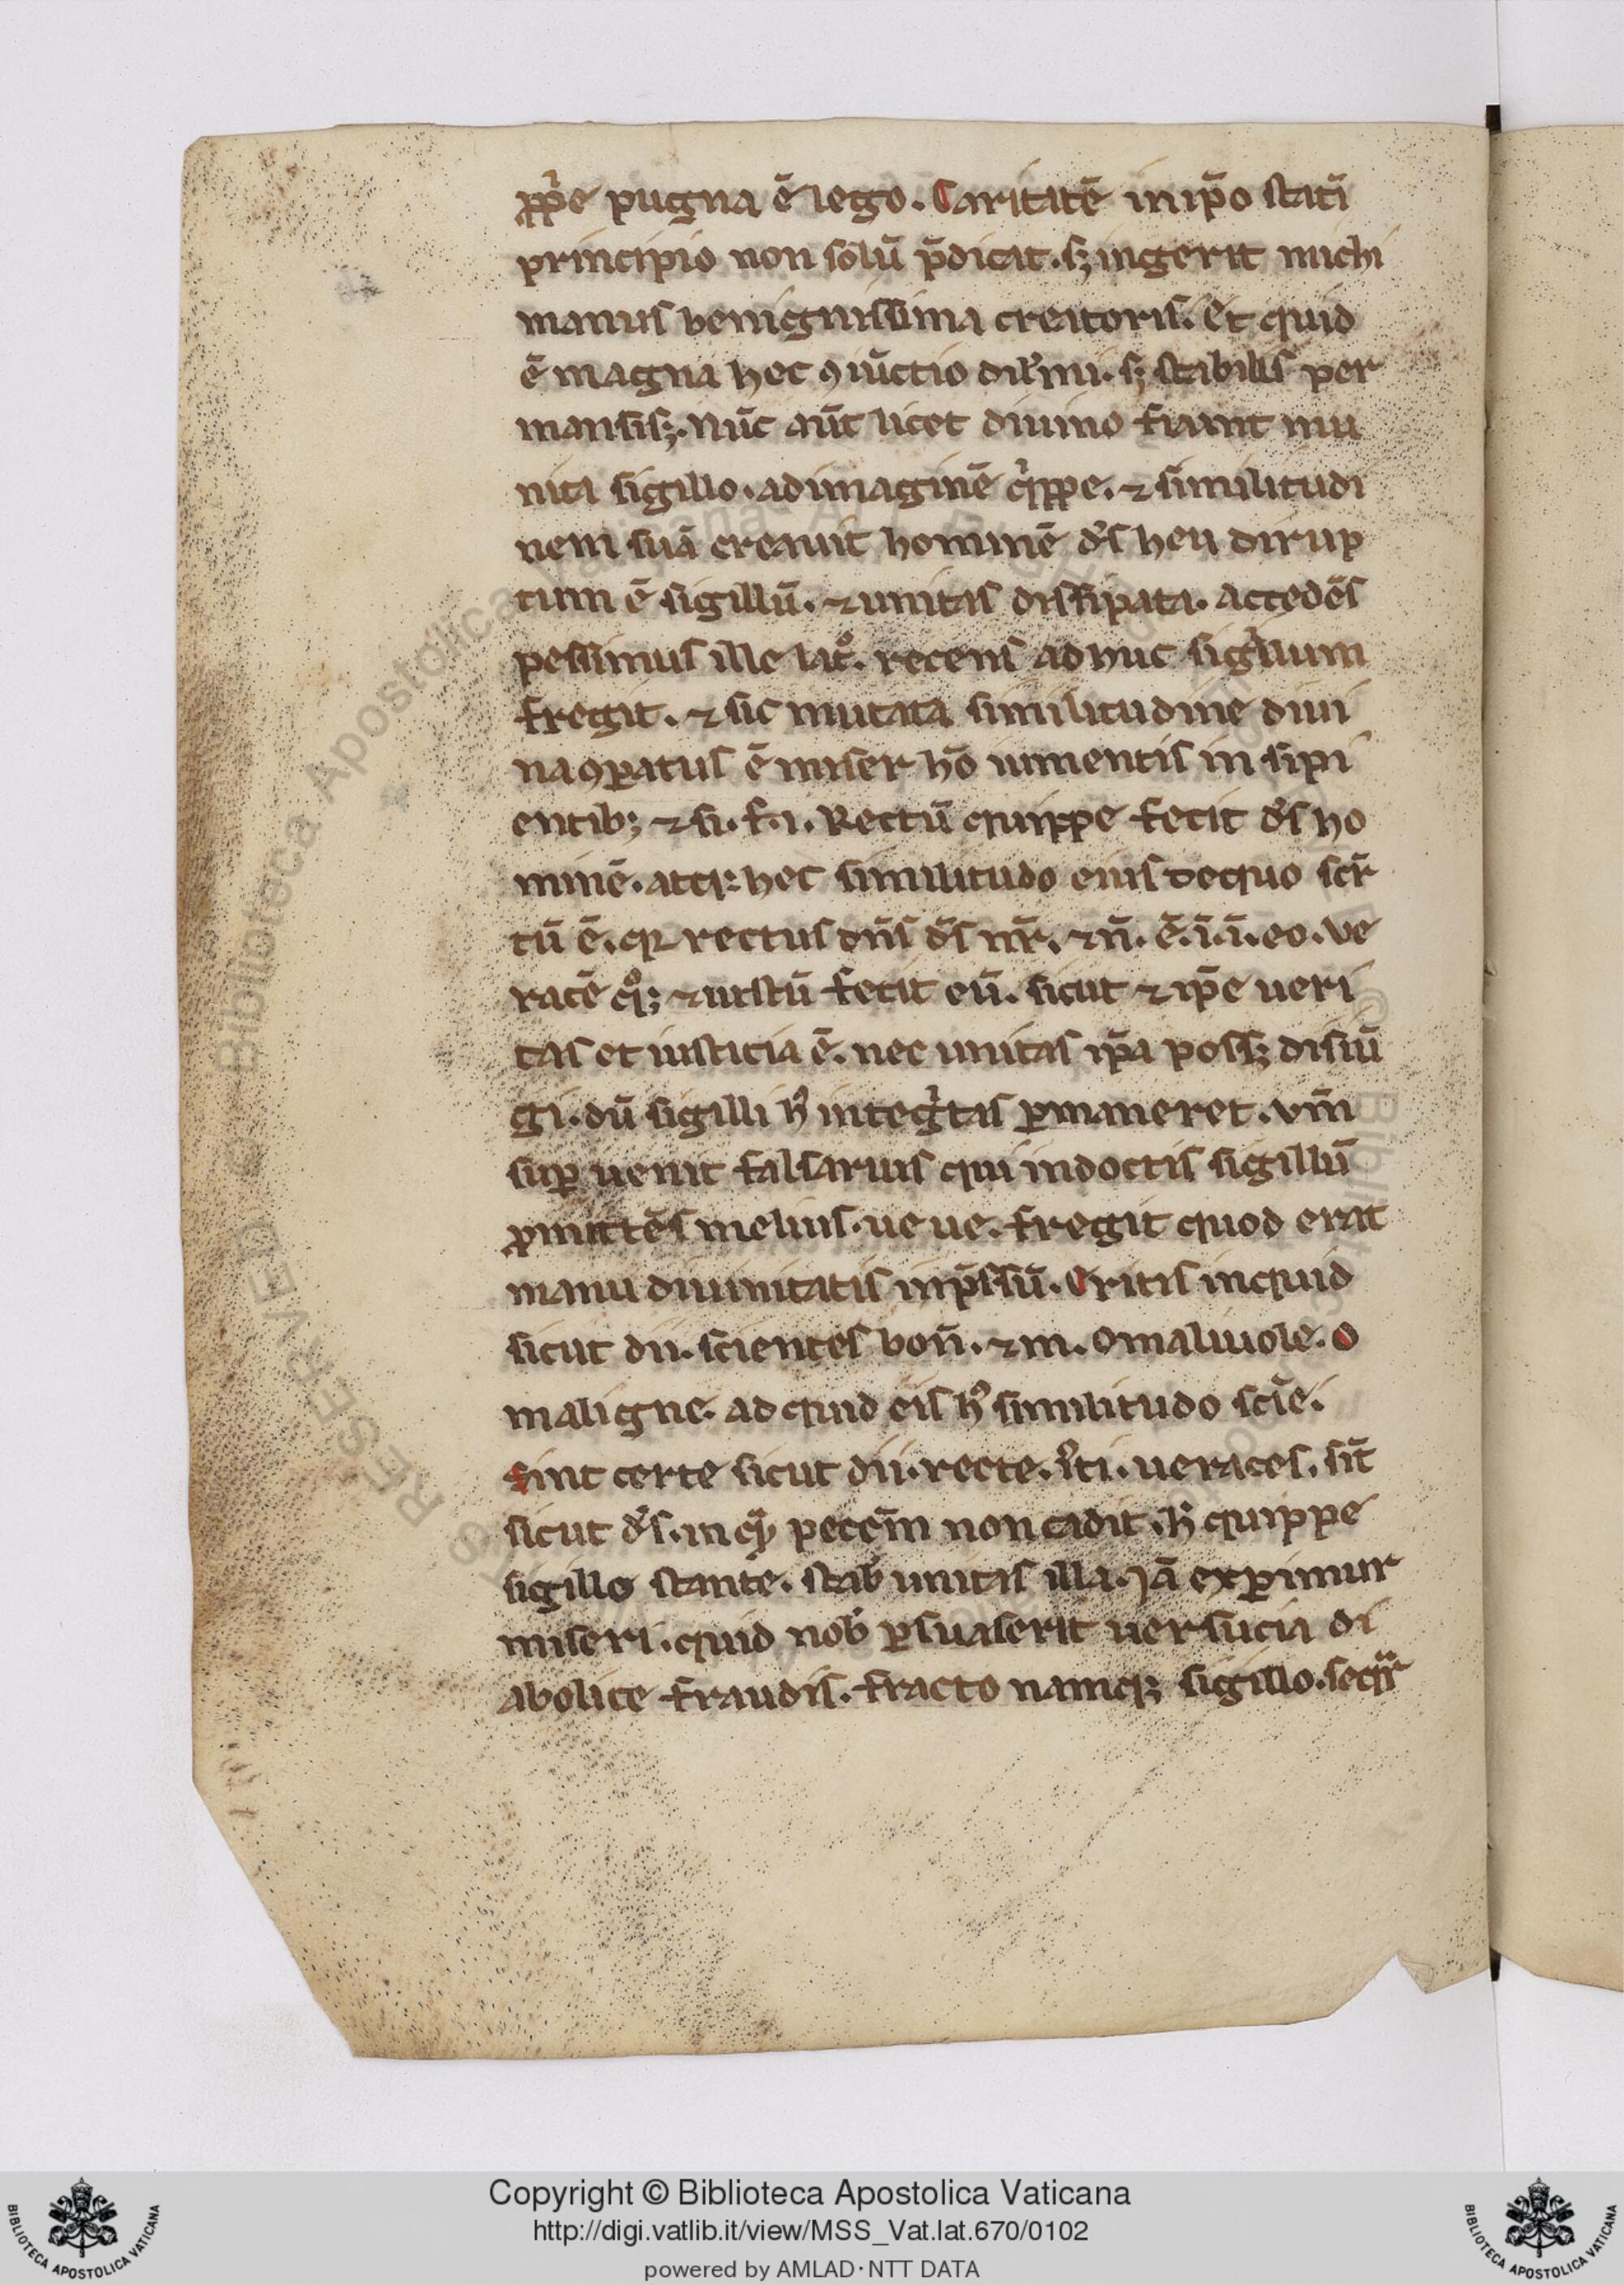 pp̾e pugna ē lego. Caritatē in ip̄o statī
principio non solū p̄dicat. sꝫ ingerit michi
manus benignissima creatoris. Et quid
ē magna hec ꝯiūctio dirīmi. sꝫ stabilis per
mansisꝫ. Nūc aūt licet diuino fiant mu
nita sigillo. ad imaginē qͥppe. ⁊ similitudi
nem suā creauit hominē d̄s heu dirup
tum ē sigillū. ⁊ unitas dissipata. Accedēs
pessimus ille latͦ. recens adhuc sigillum
fregit. ⁊ sic mutata similitudine diui
na ꝯꝑatus ē miser hō iumentis in sipi
entibꝫ ⁊ si. f. i. Rectū quippe fecit d̄s ho
minē. atqꝫ hec similitudo eius de quo sc̄r
tū ē. qꝛ rectus dn̄s d̄s nr̄. ⁊ n̄. ē. ī. ī. eo. Ve
racē qͦqꝫ ⁊ iustū fecit eū. sicut ⁊ ip̄e ueri
tas et iusticia ē. nec unitas ip̄a possꝫ disiū
gi. dū sigilli hͨ integͥtas ꝑmaneret. Vm̄
suꝑ uenit falsarius qui indoctis sigillū
ꝓmittēs melius. ue ue. fregit quod erat
manu diuinitatis inp̄ssū. Eritis inquid
sicut dii. scientes bon̄. ⁊ m. O maliuole. O
maligne. ad quid eis hͨ similitudo scīe.
Sint certe sicut dii. recte. iͥti. ueraces. sīt
sicut d̄s. in qͣ peccm̄ non cadit. h̄ quippe
sigillo stante. stab̄ unitas illa. Jā exꝑimur
miseri. quid nob̄ ꝑsuaserit uersucia di
abolice fraudis. fracto namqꝫ sigillo. seqͣr
Copyright © Biblioteca Apostolica Vaticana
http://digi.vatlib.it/view/MSS_Vat.lat.670/0102
powered by AMLAD·NTT DATA
BIBLIOTECA APOSTOLICA VATICANA
BIBLIOTECA APOSTOLICA VATICANA